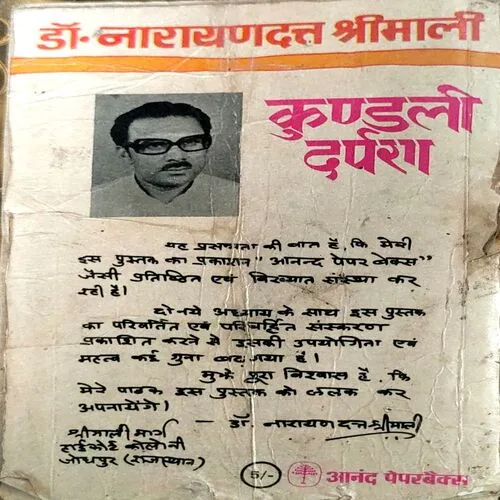 डॉ. नारायणदत्त श्रीमाली
कुण्डली
दर्पण
यह प्रसन्नता की बात है, कि मेरी
इस पुस्तक का प्रकाशन "आनन्द पेपर बेक्स"
जैसी प्रतिष्ठित एवं विख्यात संस्था कर
रही है।
दो नये अध्याय के साथ इस पुस्तक
का परिवर्तित एवं परिवर्द्धित संस्करण
प्रकाशित करने से इसकी उपयोगिता एवं
महत्व कई गुना बढ गया है।
मुझे पूरा विश्वास है, कि
मेरे पाठक इस पुस्तक को ललक कर
अपनायेंगे।
- डॉ. नारायण दत्त श्रीमाली
श्रीमाली मार्ग
हाईकोर्ट कोलोनी
जोधपुर (राजस्थान)
5/- आनंद पेपरबेक्स